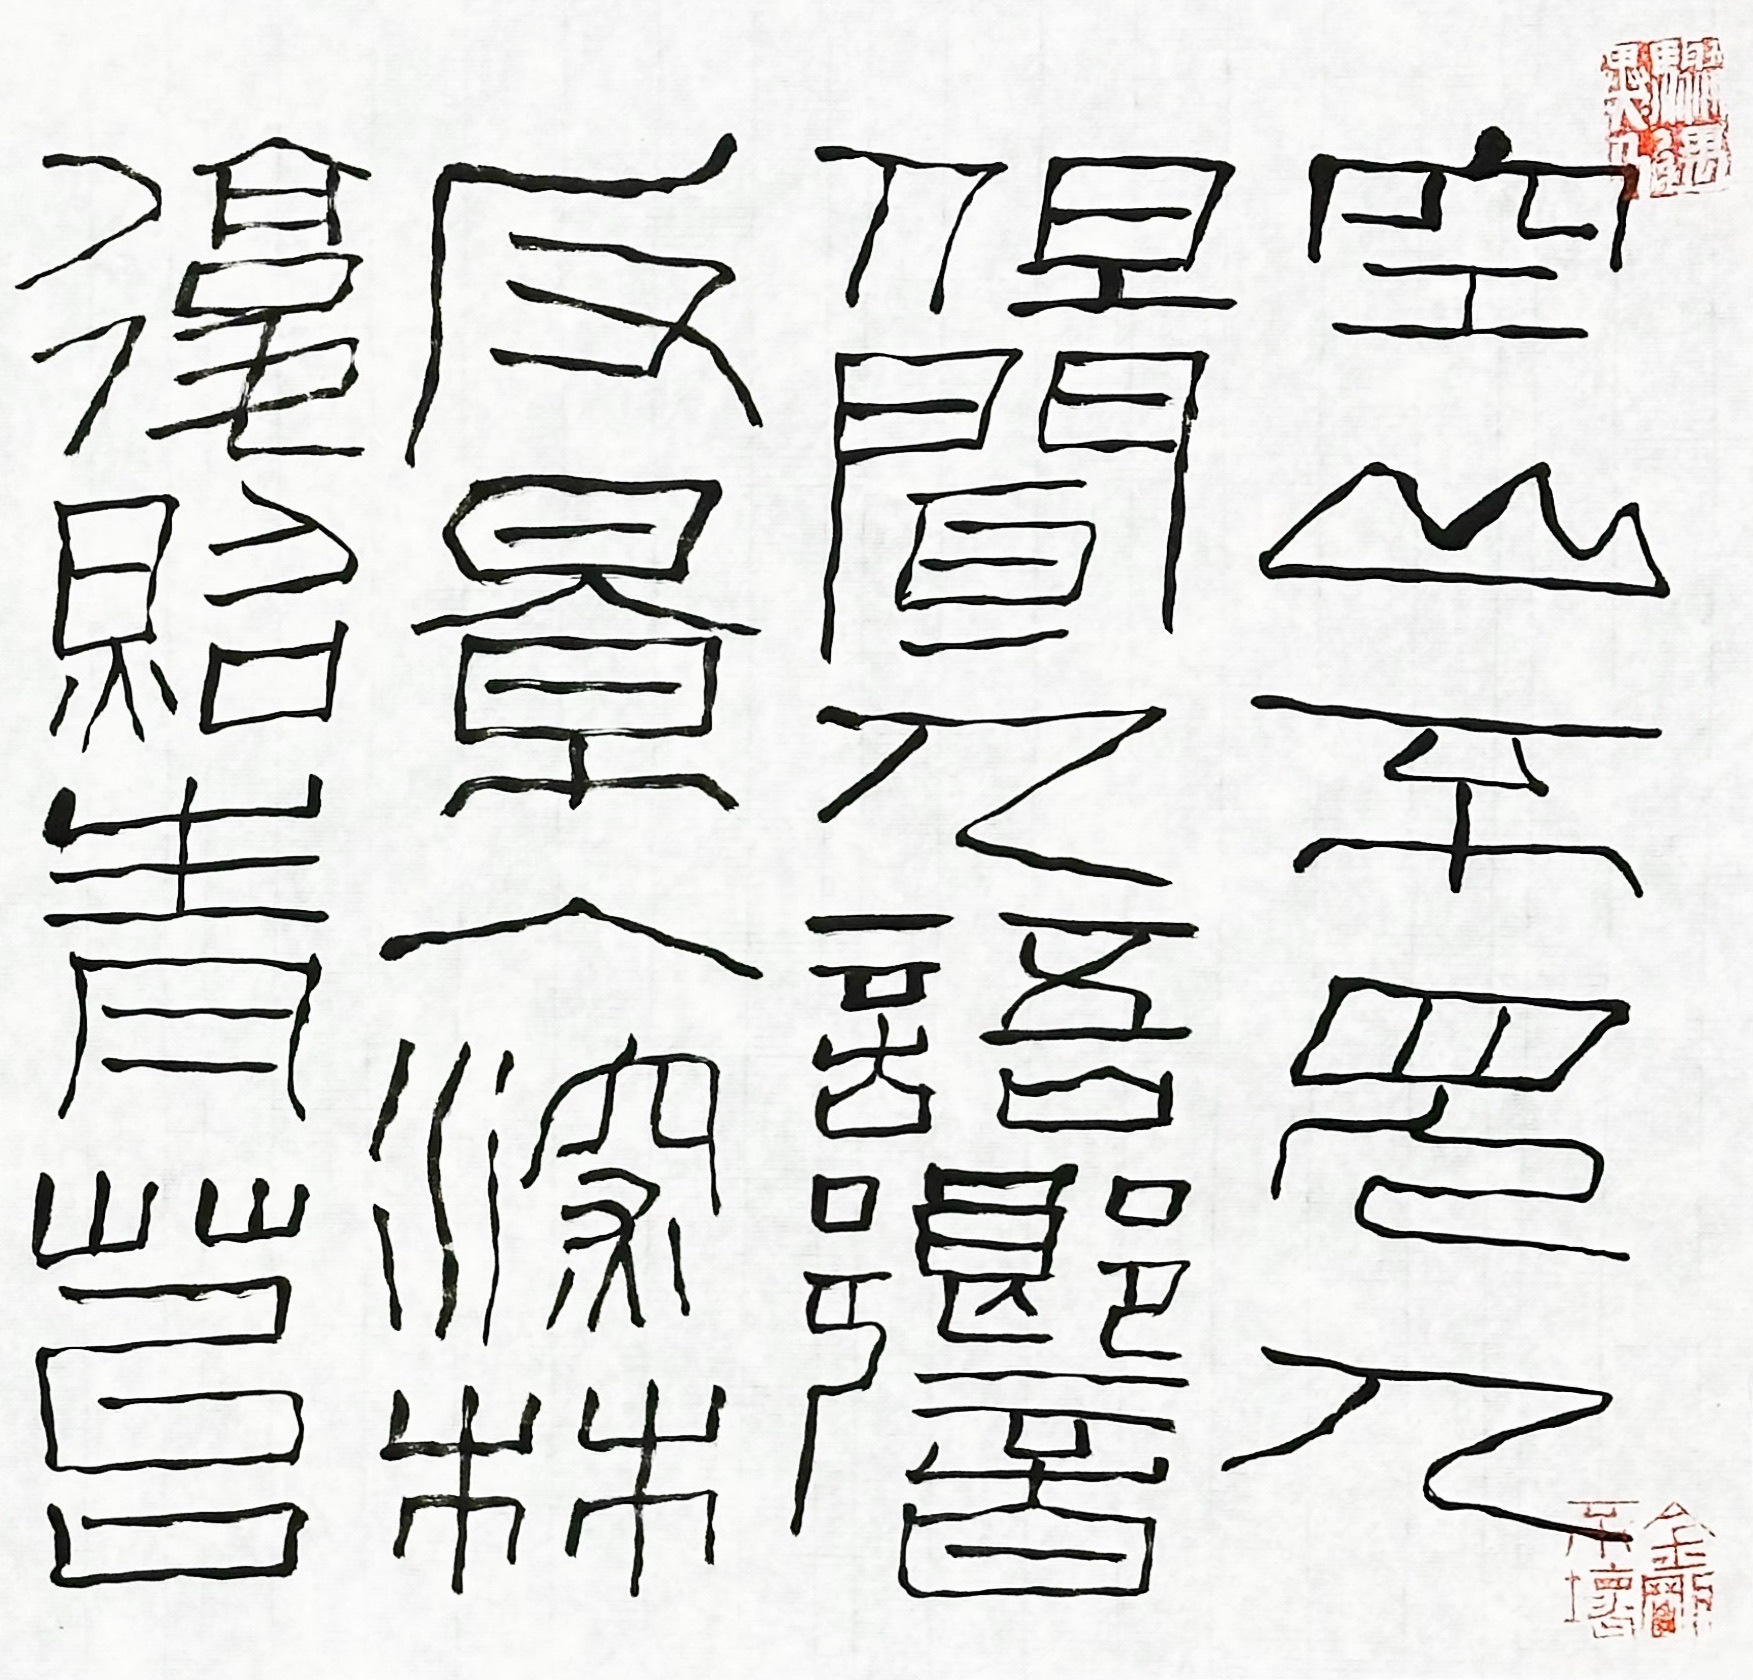 空山不見人
但聞人語響
反景入深林
復照青苔
金剛不壞